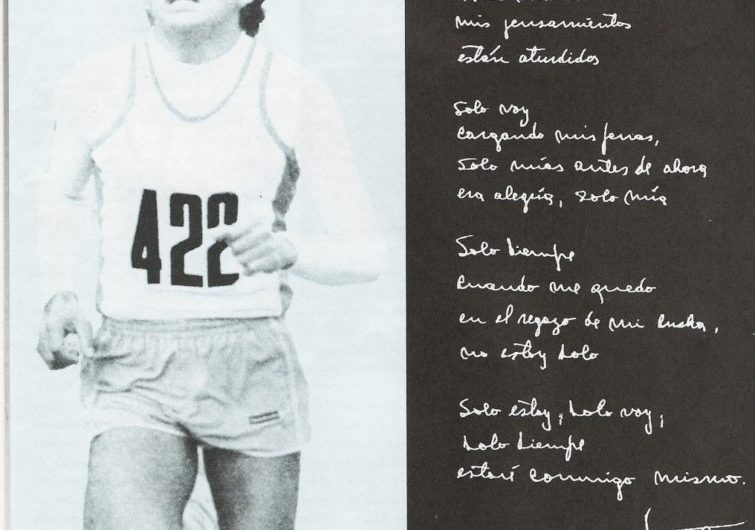 422
mis pensamientos
están aturdidos
Solo voy
cargando mis penas,
Solo mías antes de ahora
era alegría, solo mía
Solo siempre
Cuando me quedo
en el regazo de mi lucha,
no estoy solo
Solo estoy, solo voy,
solo siempre
estaré conmigo mismo.